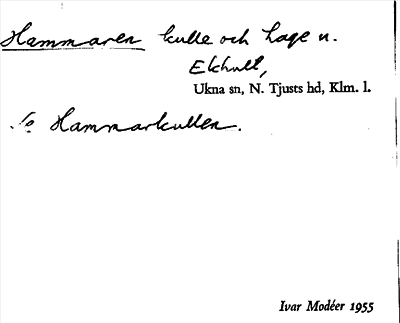 Hammaren kulle och hage n.
Ekhult,
Ukna sn, N. Tjusts hd, Klm. l.
Se Hammarkullen.
Ivar Modéer 1955